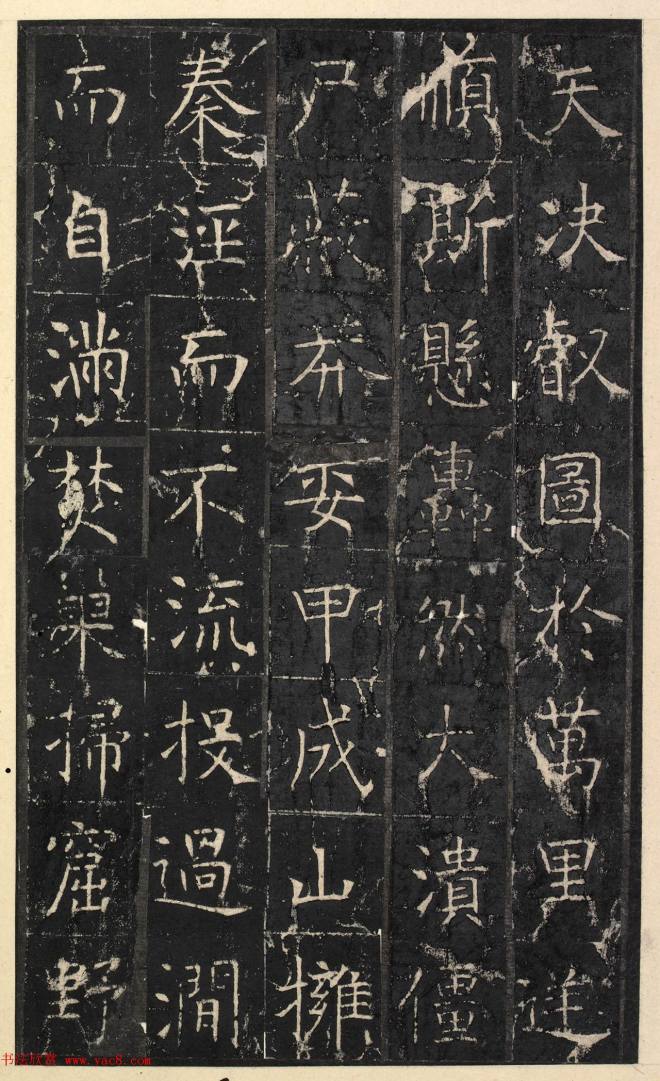 天决叡圖於萬里逆
順斯懸轟然大潰僵
尸蔽莽委甲成山擁
秦涇而不流投過澗
而自滿焚巢掃窟野
书法欣赏 www.yac8.com